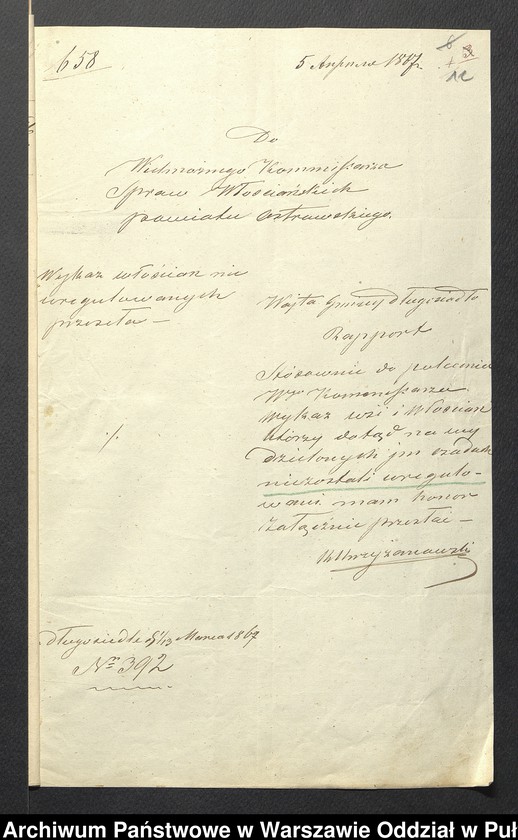 658
5 Апреля 1867.
Do
Wielmożnego Kommissarza
Spraw Włościańskich
powiatu Ostrowskiego.
Wykaz włościan nie
uregulowanych
przesyła —
Wójta Gminy Długosiodło
Rapport
Stósownie do polecenia
Wgo Kommissarza
Wykaz wsi i Włościan
którzy dotąd na wy
dzielonych im osadach
niezostali uregulo-
wani mam honor
załącznie przesłać —
Chrzanowski
./.
Długosiodło 1/13 Marca 1867
Nr 392
Archiwum Państwowe w Warszawie Oddział w Puł